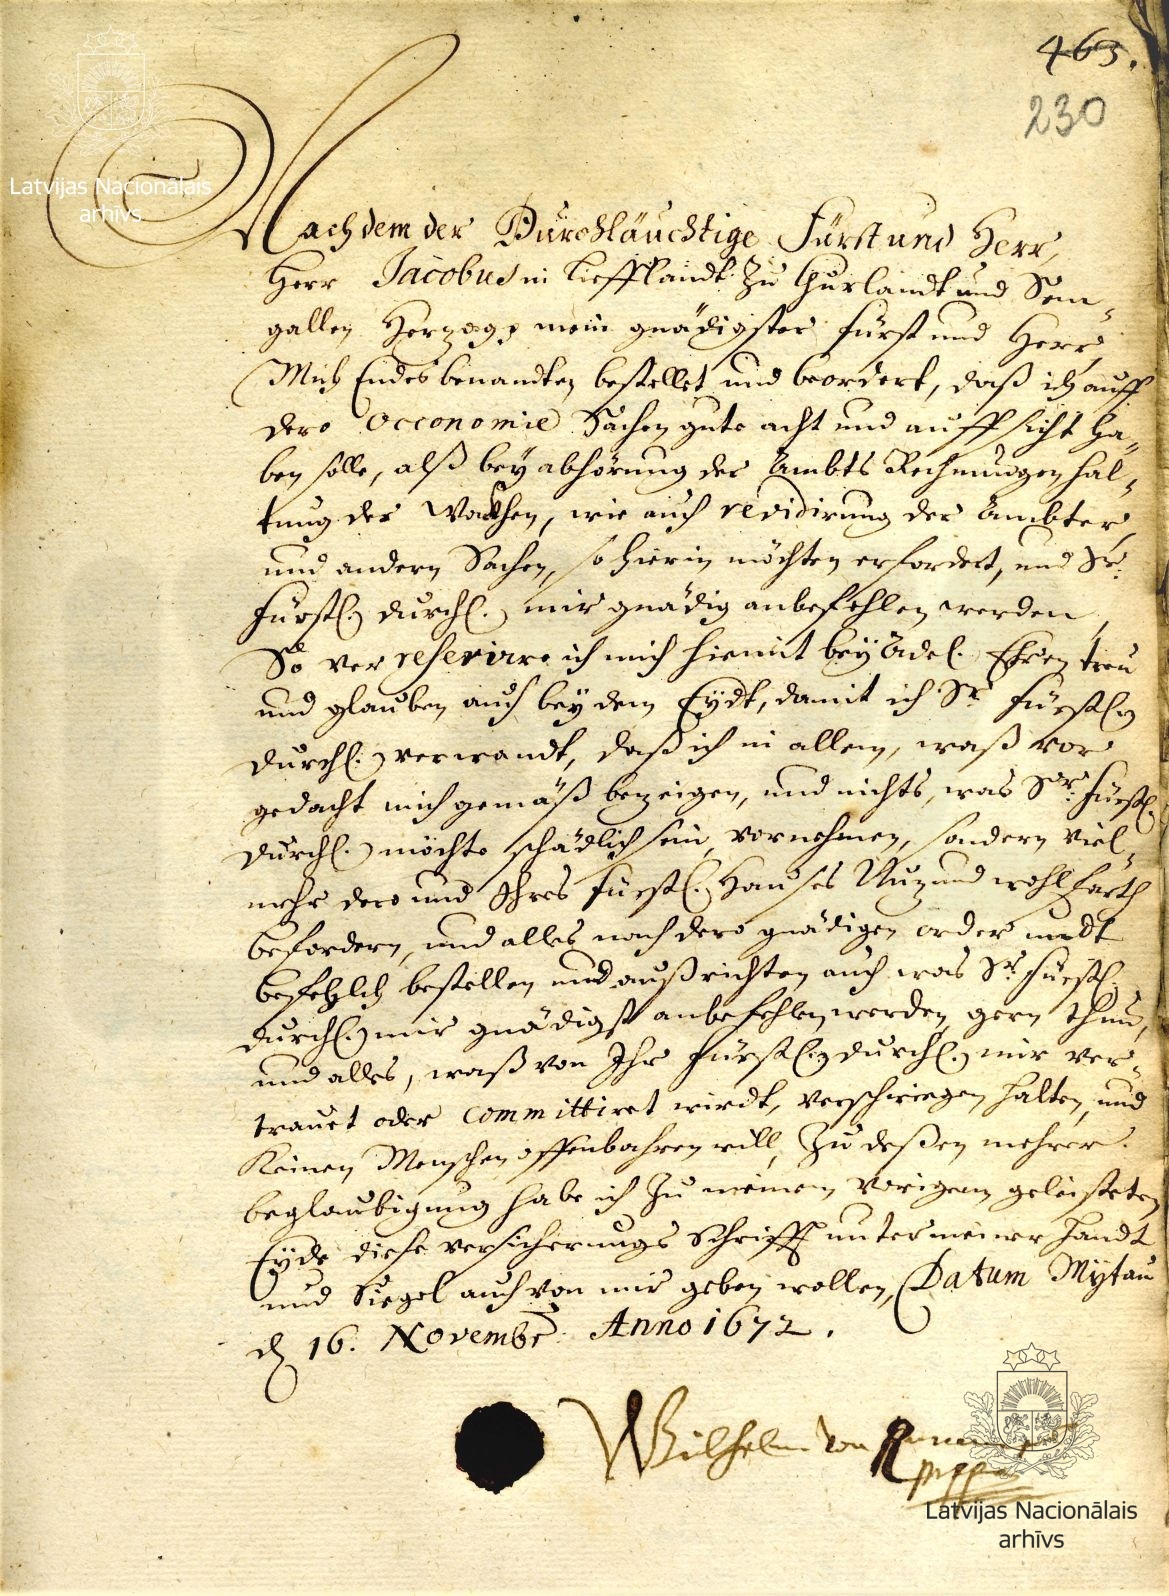 463.
230
Latvijas Nacionālais
arhīvs
Nachdem der Durchläuchtige Fürst und Herr,
Herr Jacobus in Liefflandt zu Churlandt und Sem=
gallen Herzoge mein gnädigster Fürst und Herr,
Mich Endes benandten bestellet und beordert, daß ich auff
dero Oeconomie Sachen gute acht und auffsicht ha=
ben solle, alß bey abhörung der Ambts Rechnungen hal=
tung der Wacken, wie auch revidirung der Ämbter
und andern Sachen, so hierin möchten erfordert, und Sr.
Fürstl. Durchl. mir gnädig anbefehlen werden,
So ver reservire ich mich hiemit bey Adel. Ehren treu
und glauben auch bey dem Eydt, damit ich Sr. Fürstl.
Durchl. verwandt, daß ich in allem, waß vor
gedacht mich gemäß bezeigen, und nichts, was Sr. Fürstl.
Durchl. möchte schädlich sein, vornehmen, sondern viel=
mehr dero und Ihres Fürstl. Hauses Nuz und wohlfarth
befordern, und alles nach dero gnädigen order undt
befehlich bestellen und außrichten auch was Sr. Fürstl.
Durchl. mir gnädigst anbefehlen werden, gern thun,
und alles, waß von Ihr Fürstl. Durchl. mir ver=
trauet oder committiret wirdt, verschwiegen halten, und
Keinen Menschen offenbahren will, Zu deßen mehrer
beglaubigung habe ich zu meinem vorigem geleisteten
Eyde diese versicherungs Schrifft unter meiner Handt
und Siegel auch von mir geben wollen, Datum Mytau
d 16. Novembr. Anno 1672.
Wilhelm von
Latvijas Nacionālais
arhīvs